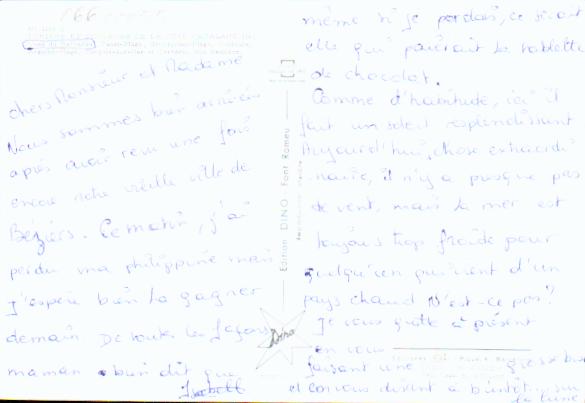 166
chers Monsieur et Madame
Nous sommes bien arrivés
après avoir revu une fois
encore notre vieille ville de
Béziers. Ce matin, j'ai
perdu ma philippine mais
j'espère bien la gagner
demain De toutes les façons
maman a bien dit que
même si je perdais, ce serait
elle qui paierait la tablette
de chocolat.
Comme d'habitude, ici il
fait un soleil resplendissant
Aujourd'hui, chose extraordi
naire, il n'y a presque pas
de vent, mais la mer est
toujours trop froide pour
quelqu'un qui vient d'un
pays chaud N'est-ce pas?
Je vous quitte à présent
en vous
faisant une grosse bise
et en vous disant à bientôt sur
la lune
Edition DINO Font Romeu
Dino